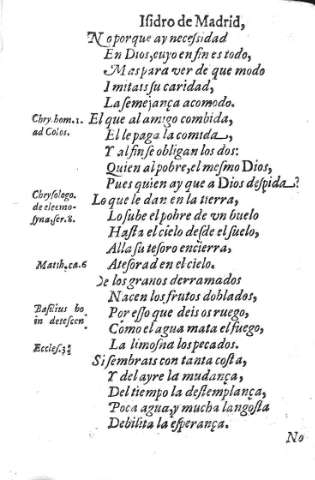 Isidro de Madrid,
No porque ay necessidad
En Dios, cuyo en fin es todo,
Mas para ver de que modo
Imitais su caridad,
La semejança acomodo.
Chry.hom.1.
ad Colos.
El que al amigo combida,
El le paga la comida,
Y al fin se obligan los dos:
Quien al pobre, el mesmo Dios,
Pues quien ay que a Dios despida?
Chrysologo.
de eleemo-
syna, ser. 8.
Lo que le dan en la tierra,
Lo sube el pobre de vn buelo
Hasta el cielo desde el suelo,
Alla su tesoro encierra,
Matth.ca.6
Atesorad en el cielo.
De los granos derramados
Nacen los frutos doblados,
Basilius ho
in
Por esso que deis os ruego,
Como el agua mata el fuego,
Eccles.3
La limosna los pecados.
Si sembrais con tanta costa,
Y del ayre la mudança,
Del tiempo la destemplança,
Poca agua, y mucha langosta
Debilita la esperança.
No